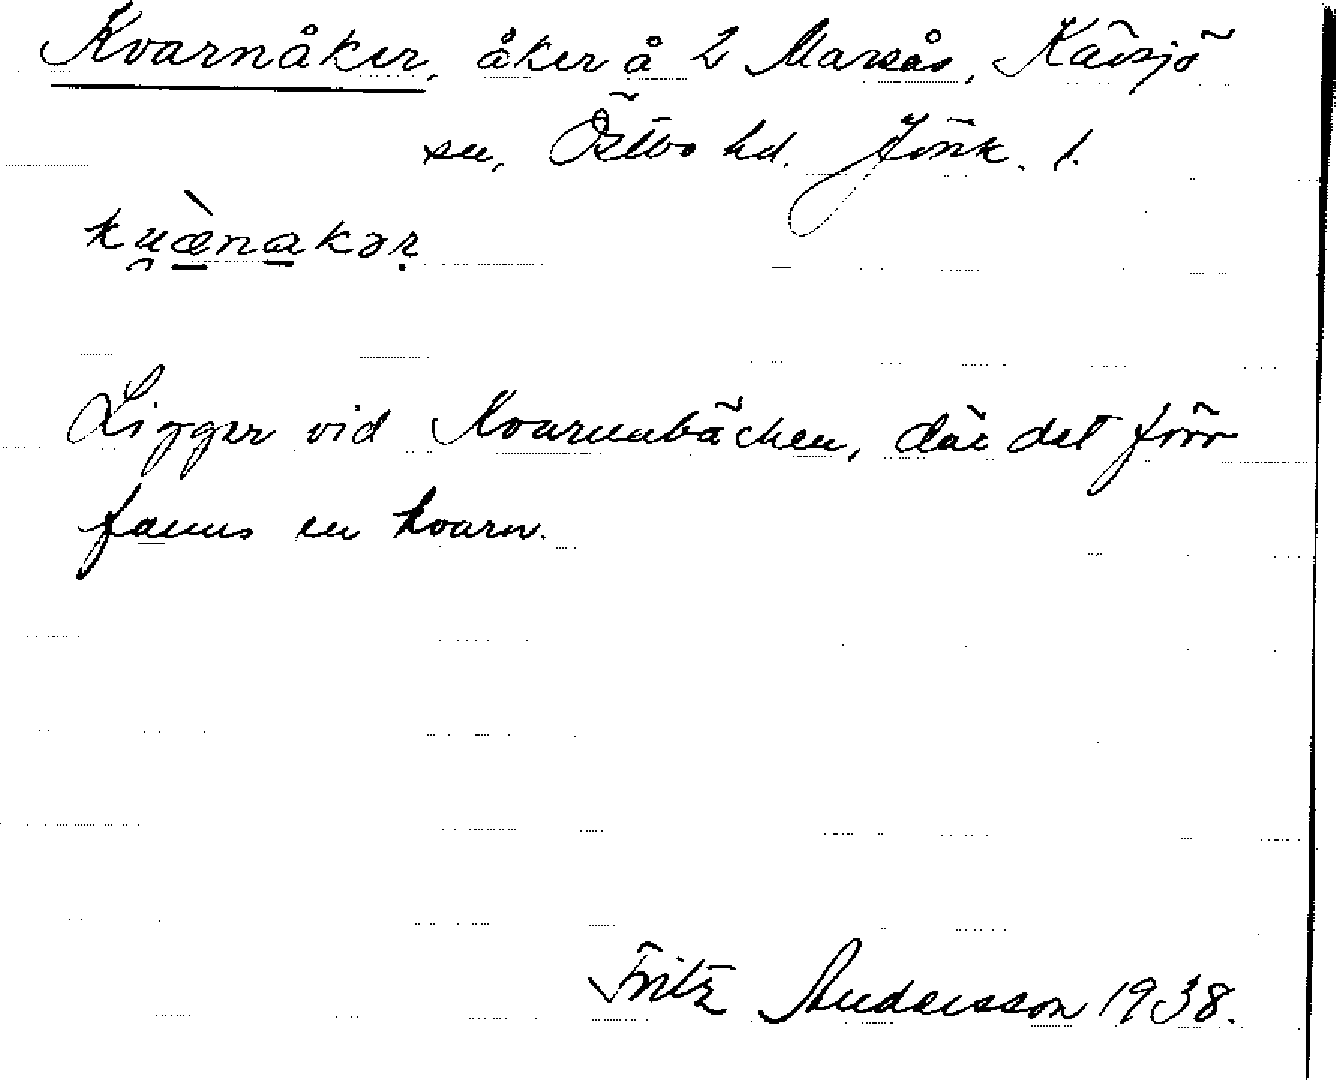 Kvarnåker, åker å 2 Marsås, Kävsjö
sn, Östbo hd. Jönk. l.
ku̯æ̀nakər
Ligger vid Kvarnabäcken, där det förr
fanns en kvarn.
Fritz Andersson 1938.